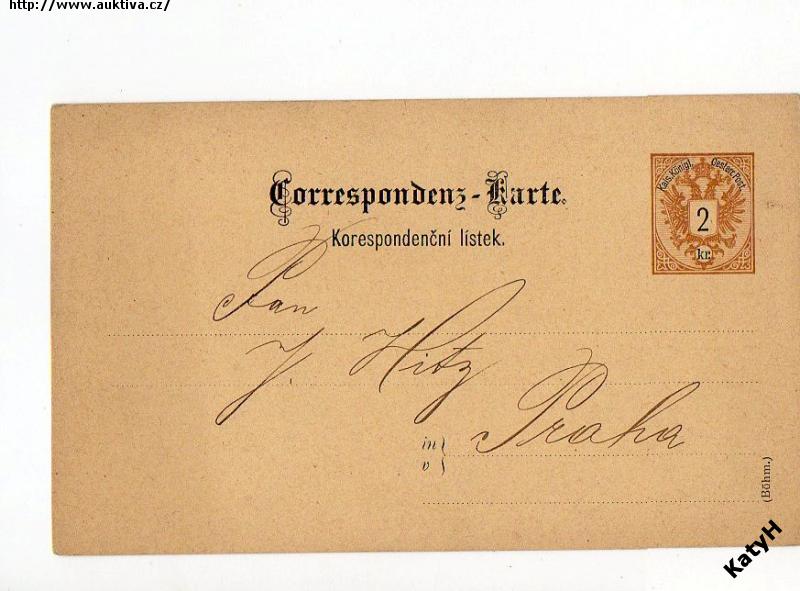 http://www.auktiva.cz/
Correspondenz-Karte.
Korespondenční lístek.
Kais. Königl. Oesterr. Post.
2
kr.
Pan
J. Hitz
in
v
Praha
(Böhm.)
KatyH